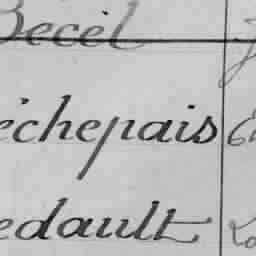 Becel
échepais
edault